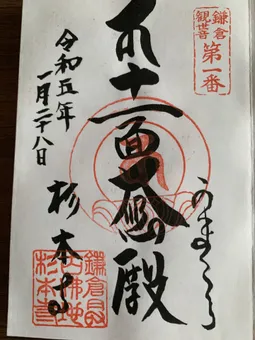 鎌倉
観世音
第一番
かまくら
十一面大悲殿
杉本寺
令和五年
一月二十八日